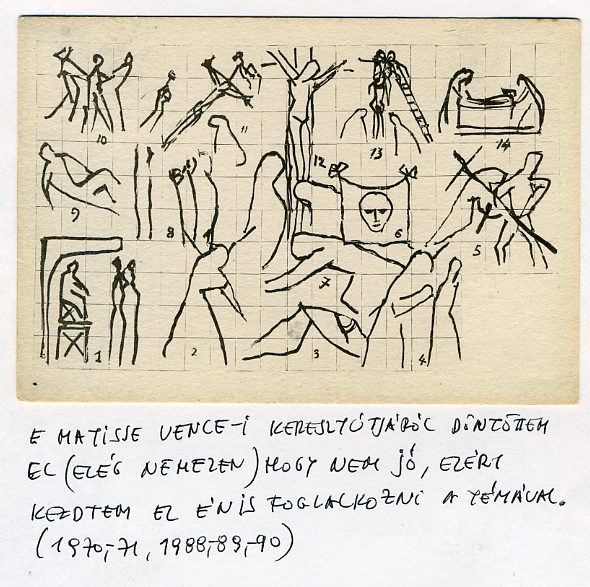 10 11 12 13 14
9 8 6 5
7
1 2 3 4
E MATISSE VENCE-I KERESZTÚTJÁRÓL DÖNTÖTTEM
EL (ELÉG NEHEZEN) HOGY NEM JÓ, EZÉRT
KEZDTEM EL ÉN IS FOGLALKOZNI A TÉMÁVAL.
(1970,-71, 1988,-89,-90)